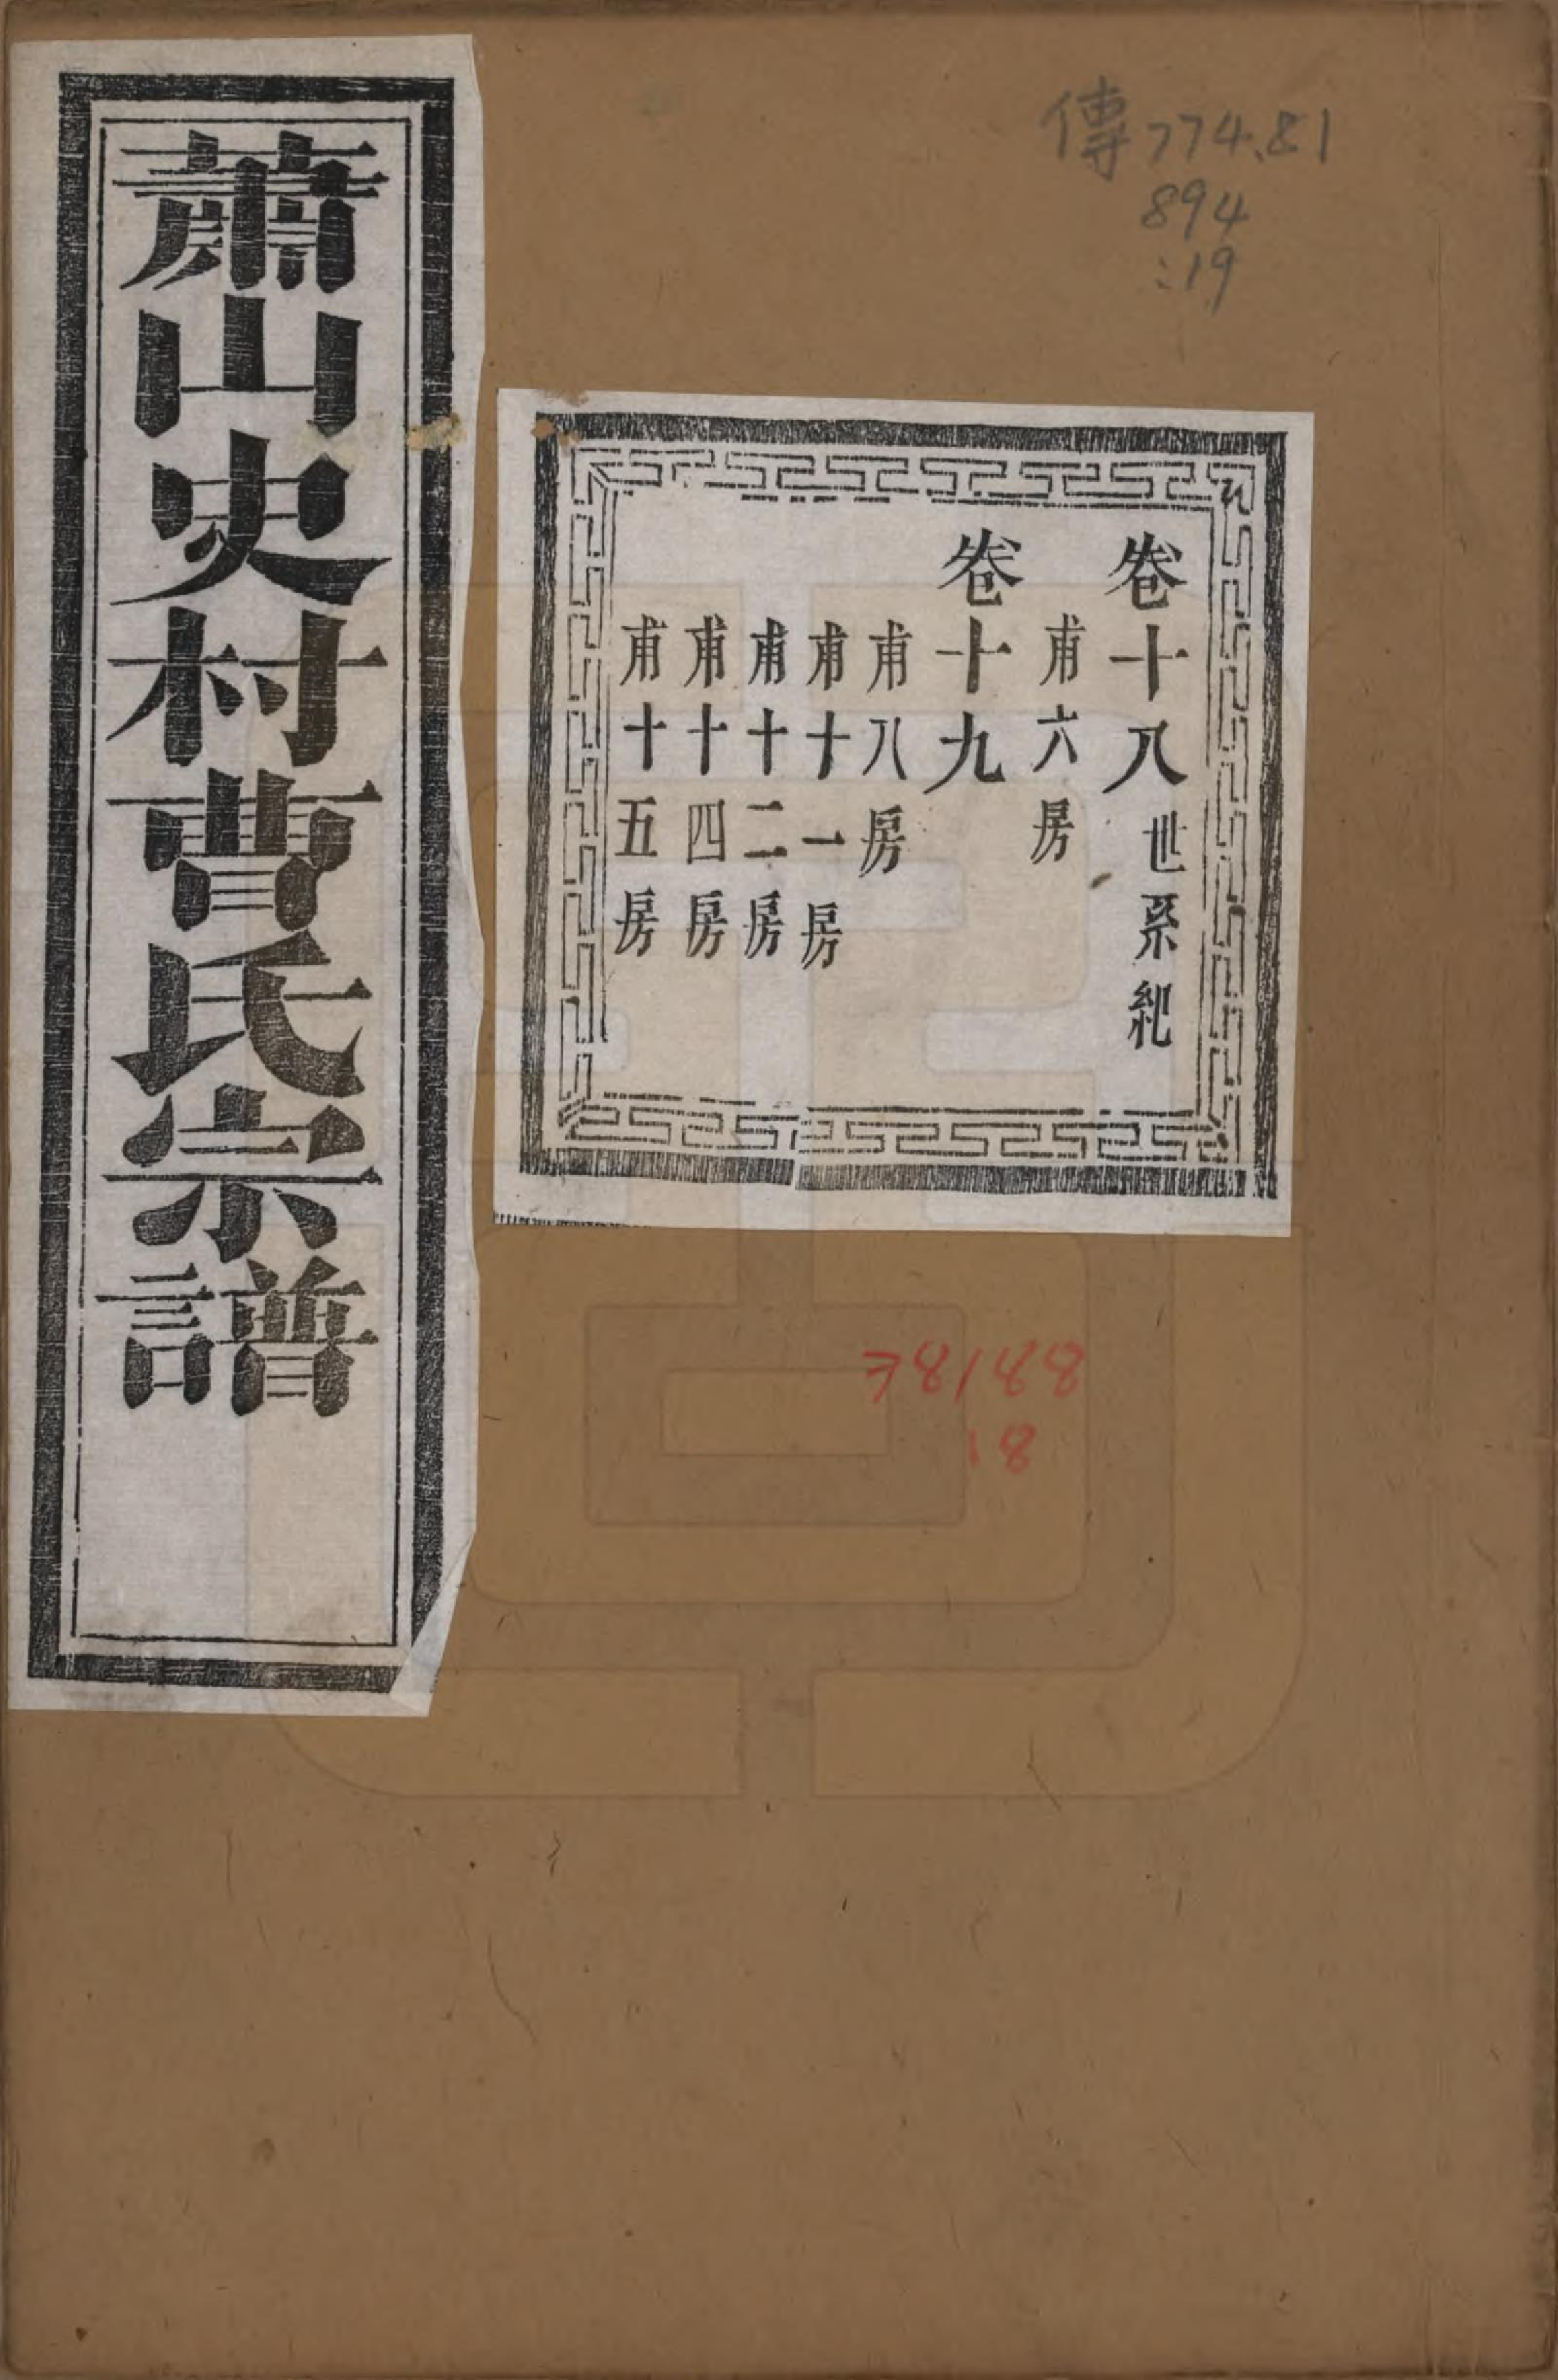 蕭山史村曹氏宗譜
傳774.81
894
:19
卷十八世系紀
甫六房
卷十九
甫八房
甫十一房
甫十二房
甫十四房
甫十五房
78188
18